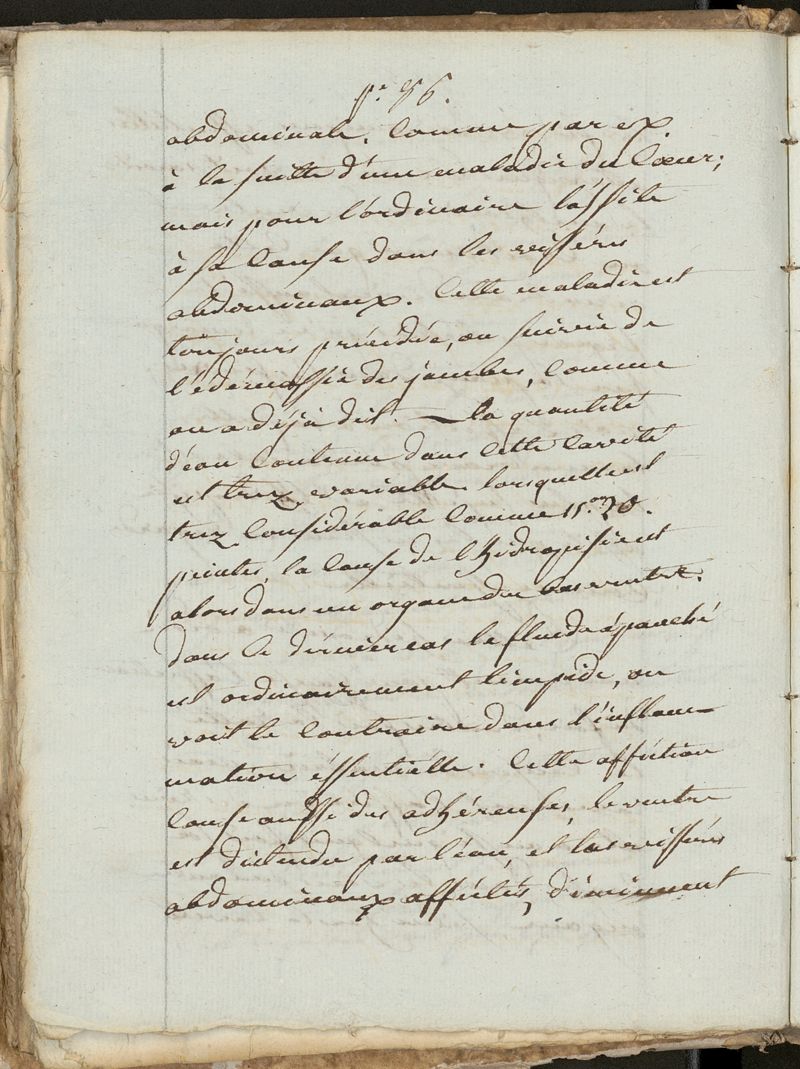 p.e 56.
abdominale. Comme par ex.
à la suitte d'une maladie du Coeur;
mais pour l'ordinaire l'assite
à sa Cause dans les vissérus
abdominaux. Cette maladie est
toujours précédée, ou suivie de
l'édémassie des jambes, Comme
on a déjà dit. — La quantité
d'eau Contenue dans Cette Cavité
est trez variable lorsquelle est
trez Considérable Comme 15. ou 20.
peintes, la Cause de l'hidropisie est
alors dans un organe du bas ventre.
Dans Ce dernier cas le fluide épanché
est ordinairement limpide, on
voit le Contraire dans l'inflam-
mation éssentielle. Cette affection
Cause aussi des adhérenses, le ventre
est distendu par l'éau, et les vissérus
abdominaux afféctés, diminuent